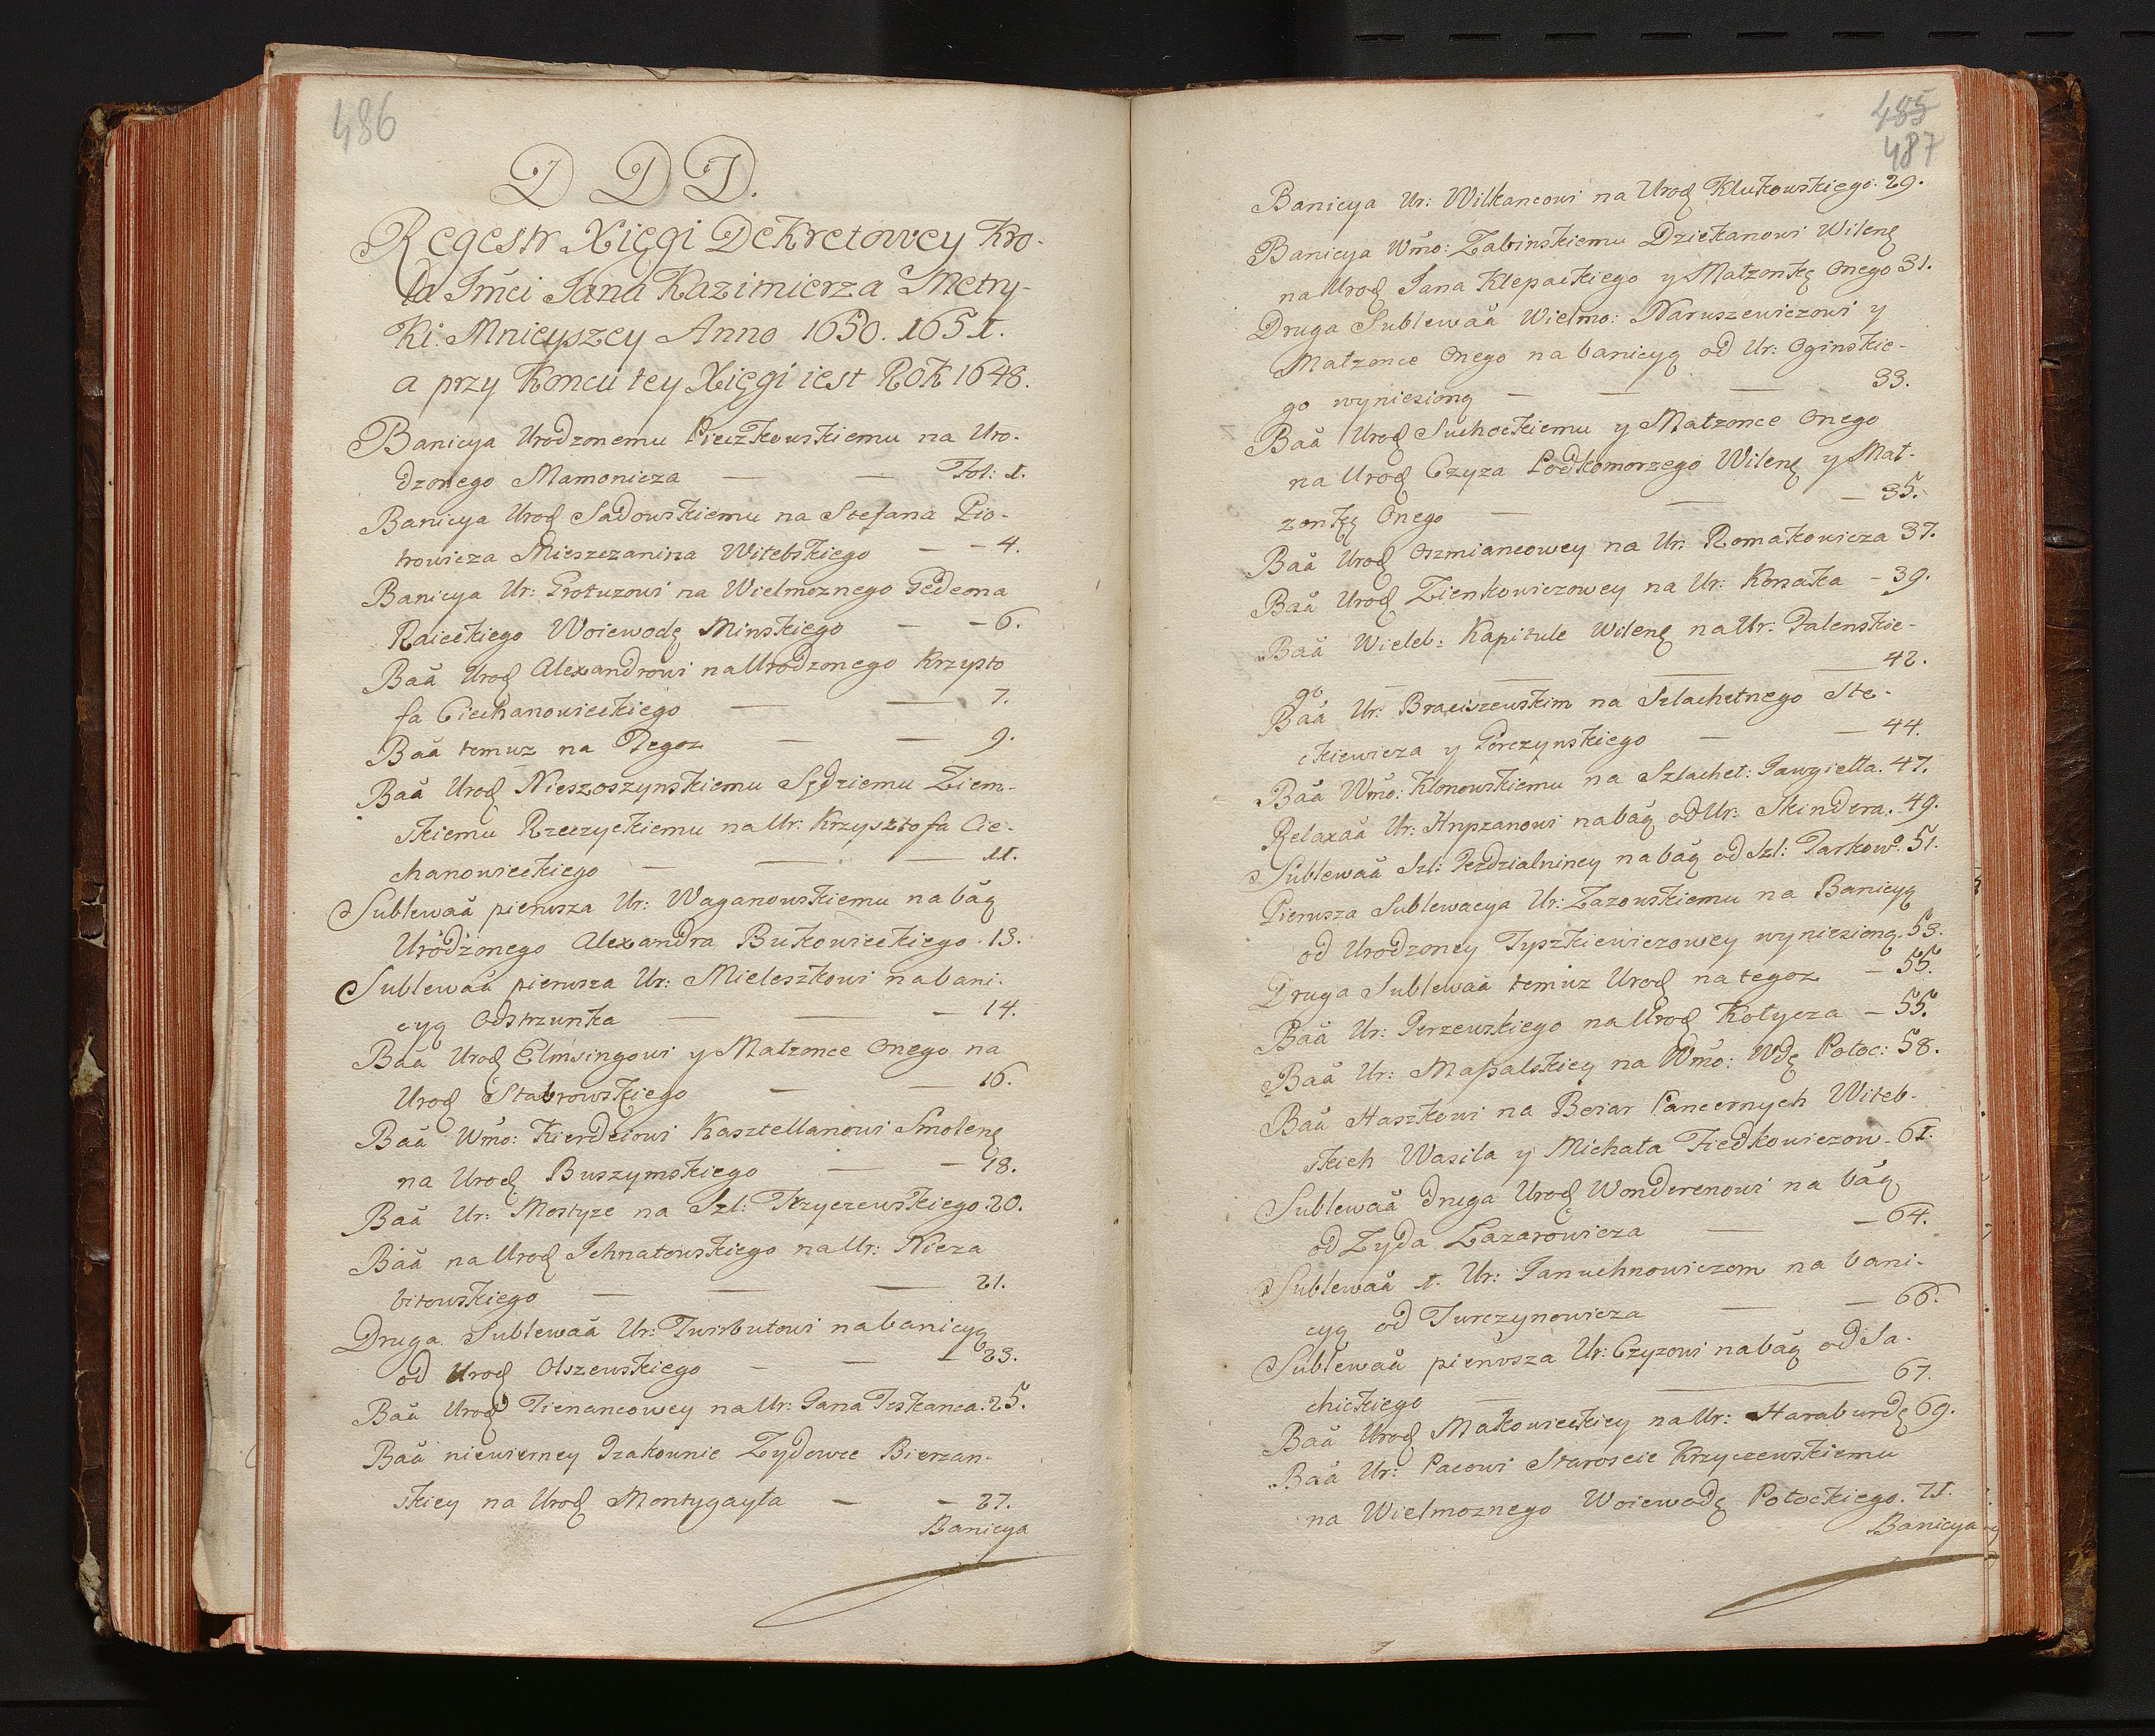 486
D D D.
Regestr Xięgi Dekretowey Kro-
la Jmći Jana Kazimierza Metry-
ki: Mnieyszey Anno 1650. 1651.
a przy Koncu tey Xięgi iest Rok 1648.
Banicya Urodzonemu Pieczkowskiemu na Uro-
dzonego Mamonicza — — Fol: 1.
Banicya Urod Sadowskiemu na Stefana Pio-
trowicza Mieszczanina Witebskiego — – 4.
Banicya Ur: Protuzowi na Wielmoznego Gedeona
Raieckiego Woiewodę Minskiego — – 6.
Baä Urod Alexandrowi na Urodzonego Krzyszto
fa Ciechanowieckiego — — 7.
Baä temuz na Tegoz — — 9.
Baä Urod Nieszoszynskiemu Sędziemu Ziem-
skiemu Rzeczyckiemu na Ur. Krzysztofa Cie-
chanowieckiego — — — 11.
Sublewaä pierwsza Ur: Waganowskiemu na bäą
Urodzonego Alexandra Bukowieckiego . 13.
Sublewaä pierwsza Ur: Mieleszkowi na bani-
cyą Odstrzunka — — – 14.
Baä Urod Elmsingowi y Małzonce Onego na
Urod Stabrowskiego — — 16.
Baä Wmo: Kierdeiowi Kasztellanowi Smolenę
na Urod Buszymskiego — – 18.
Baä Ur: Mostyze na Szl: Krzyczewskiego . 20.
Baä na Urod Jehnatowskiego na Ur: Nieza
bitowskiego — — — 21.
Druga Sublewaä Ur: Twirbutowi na banicyą
od Urod Olszewskiego — — – 23.
Baä Urod Tienancowey na Ur: Jana Jeskanca . 25.
Baä niewierney Izakownie Zydowce Bierzan-
skiey na Urod Montygayła — – 27.
Banicya
485
487
Banicya Ur: Wilkancowi na Urod Klukowskiego . 29.
Banicya Wmo: Zabinskiemu Dziekanowi Wilenę
na Urod Jana Klepackiego y Małzonkę Onego 31.
Druga Sublewaä Wielmo: Naruszewiczowi y
Małzonce Onego na banicyą od Ur: Oginskie-
go wyniesioną — — — 33.
Baä Urod Suchockiemu y Małzonce Onego
na Urod Czyza Podkomorzego Wilenę y Mał-
zonkę Onego — — – 35.
Baä Urod Oszmiancowey na Ur: Romakowicza 37.
Baä Urod Zienkowiczowey na Ur: Korsaka – 39.
Baä Wieleb: Kapitule Wilenę na Ur: Galenskie-
go — — — 42.
Baä Ur: Braciszewskim na Szlachetnego Ste-
ckiewicza y Gorczynskiego — — 44.
Baä Wmo: Klonowskiemu na Szlachet: Jawgiełła . 47.
Relaxaä Ur: Hrypzanowi na bäą od Ur: Skindera . 49.
Sublewaä Szl: Pezdzialniney na bäą od Szl: Tarkowo . 51.
Pierwsza Sublewacya Ur: Zazowskiemu na Banicyą
od Urodzoney Tyszkiewiczowey wyniesioną . 53.
Druga Sublewaä temuz Urod na tegoz – 55.
Baä Ur: Perzewskiego na Urod Kołycza – 55.
Baä Ur: Massalskiey na Wmo: Wdę Połoc: 58.
Baä Haszkowi na Boiar Pancernych Witeb-
skich Wasila y Michała Fiedkowiczow – 61.
Sublewaä druga Urod Wonderenowi na bäą
od Zyda Lazarowicza — – 64.
Sublewaä 1. Ur: Januchnowiczom na bani-
cyą od Turczynowicza — — 66.
Sublewaä pierwsza Ur: Czyzowi na bäą od Sa-
chickiego — — 67.
Baä Urod Makowieckiey na Ur: Haraburdę 69.
Baä Ur: Pacowi Staroscie Krzyczewskiemu
na Wielmoznego Woiewodę Połockiego . 71.
Banicya